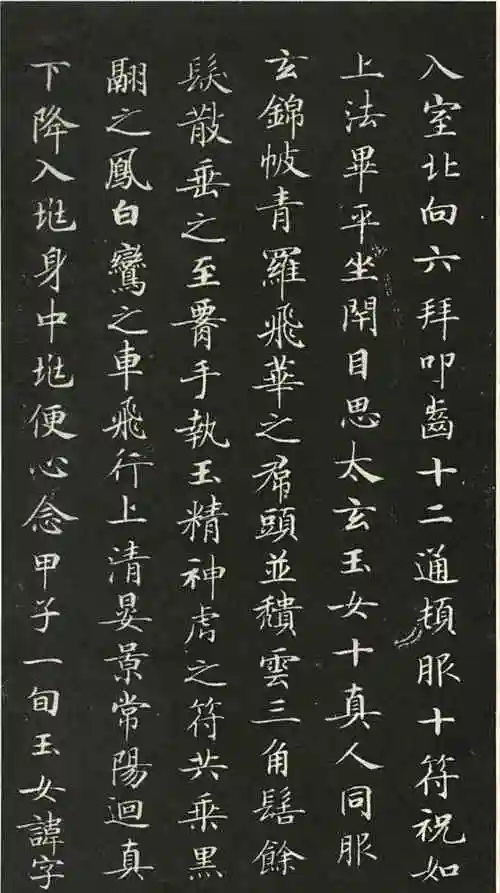 入室北向六拜叩齒十二通頓服十符祝如
上法畢平坐閇目思太玄玉女十真人同服
玄錦帔青羅飛華之帬頭並穨雲三角髻餘
髮散垂之至胷手執玉精神虎之符共乗黒
翮之鳳白鸞之車飛行上清晏景常陽迴真
下降入𡉏身中𡉏便心念甲子一旬玉女諱字